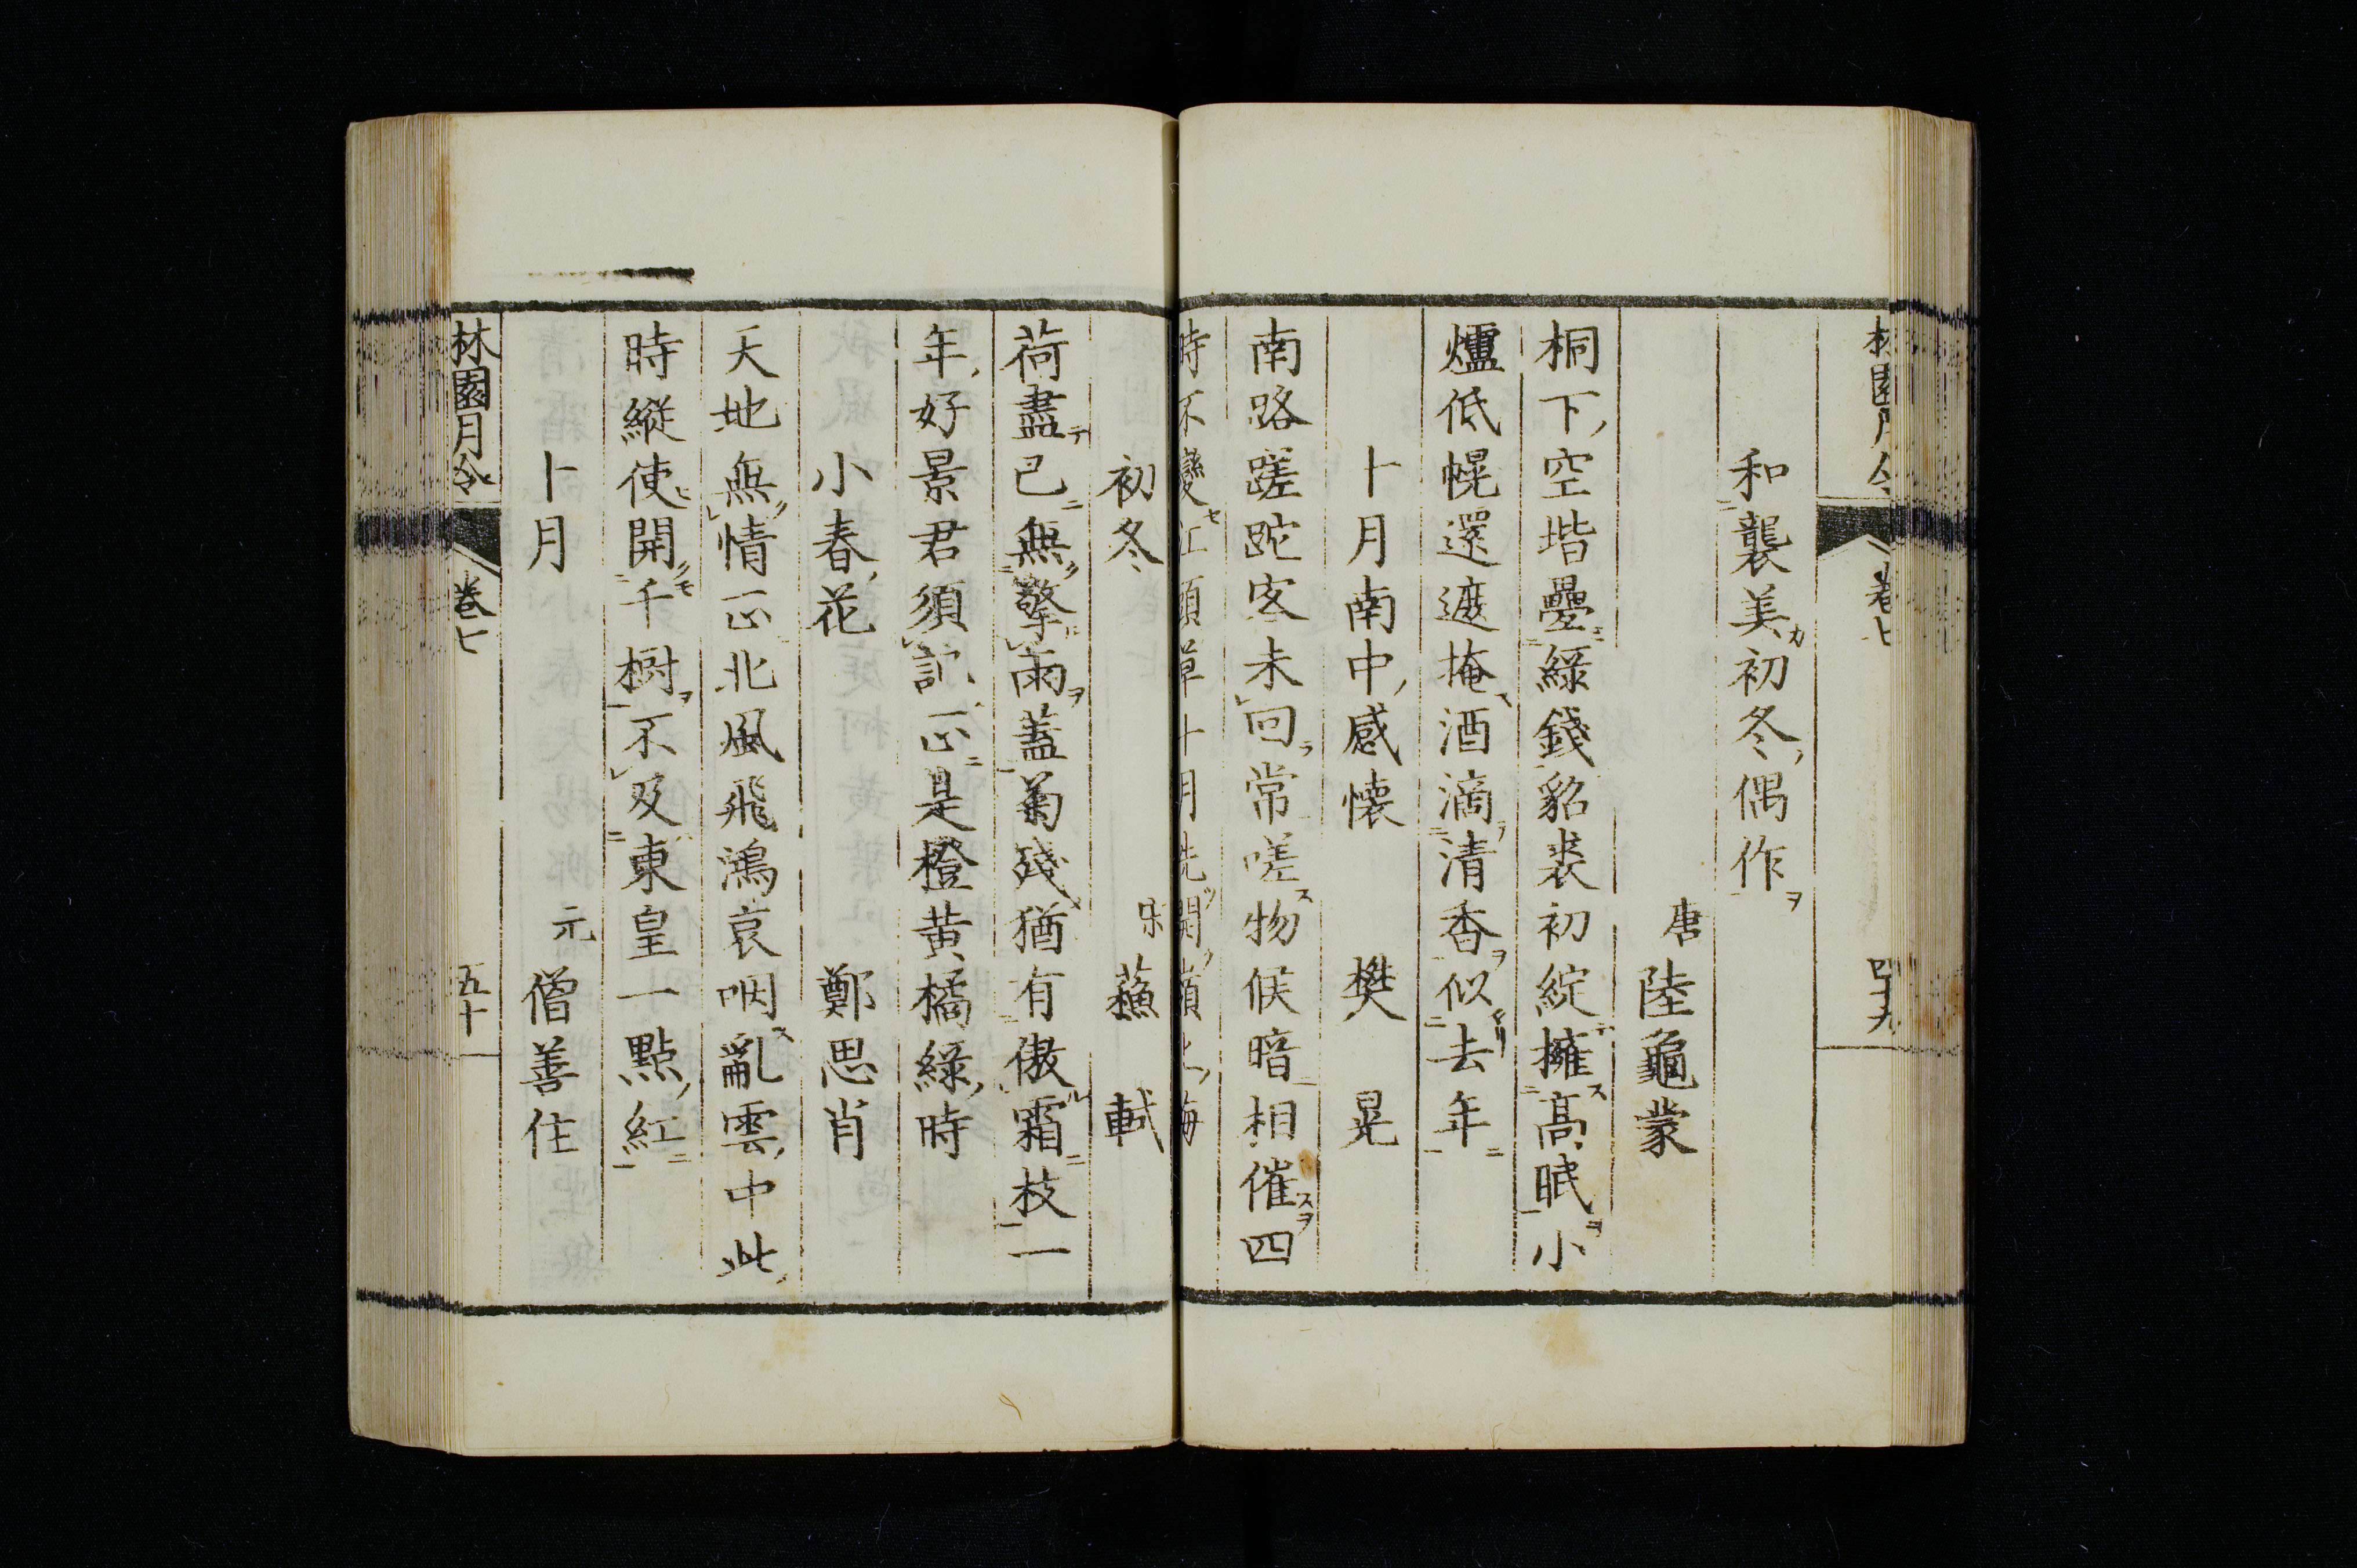 林園月令 巻七 四十九
和襲美初冬偶作ヲ
唐 陸龜蒙
桐下空堦疊綠錢貂裘初綻擁高眠小
爐低幌還遮掩酒滴清香似去年
十月南中感懷 樊晃
南路蹉跎客未回常嗟物候暗相催四
時不變江頭草十月先開嶺上梅
初冬 宋 蘇軾
荷盡已無擎雨蓋菊殘猶有傲霜枝一
年好景君須記正是橙黃橘綠時
小春花 鄭思肖
天地無情正北風飛鴻哀咽亂雲中此
時縱使開千樹不及東皇一點紅
十月 元 僧善住
林園月令 巻七 五十